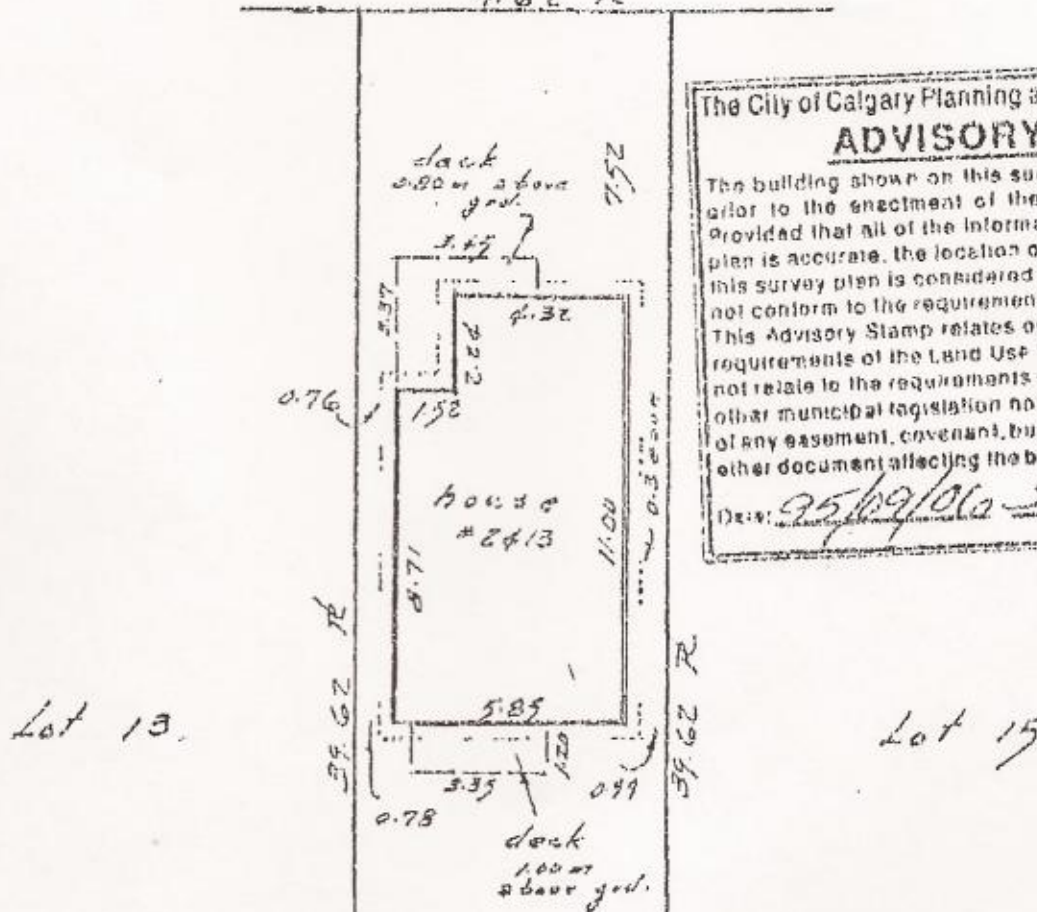 The City of Calgary Planning a
ADVISORY
The building shown on this su
prior to the enactment of the
Provided that all of the informa
plan is accurate, the location o
this survey plan is considered
not conform to the requiremen
This Advisory Stamp relates o
requirements of the Land Use
not relate to the requirements
other municipal legislation no
of any easement, covenant, bu
other document affecting the b
Date: 95/09/06
deck
0.80 m above
grd.
7.52
3.45
3.37
4.32
2.29
0.76
1.52
house
#2413
8.71
11.00
0.3 eave
39.62 R
39.62 R
Lot 13.
Lot 15
5.85
1.20
3.35
0.99
0.78
deck
1.00 m
above grd.